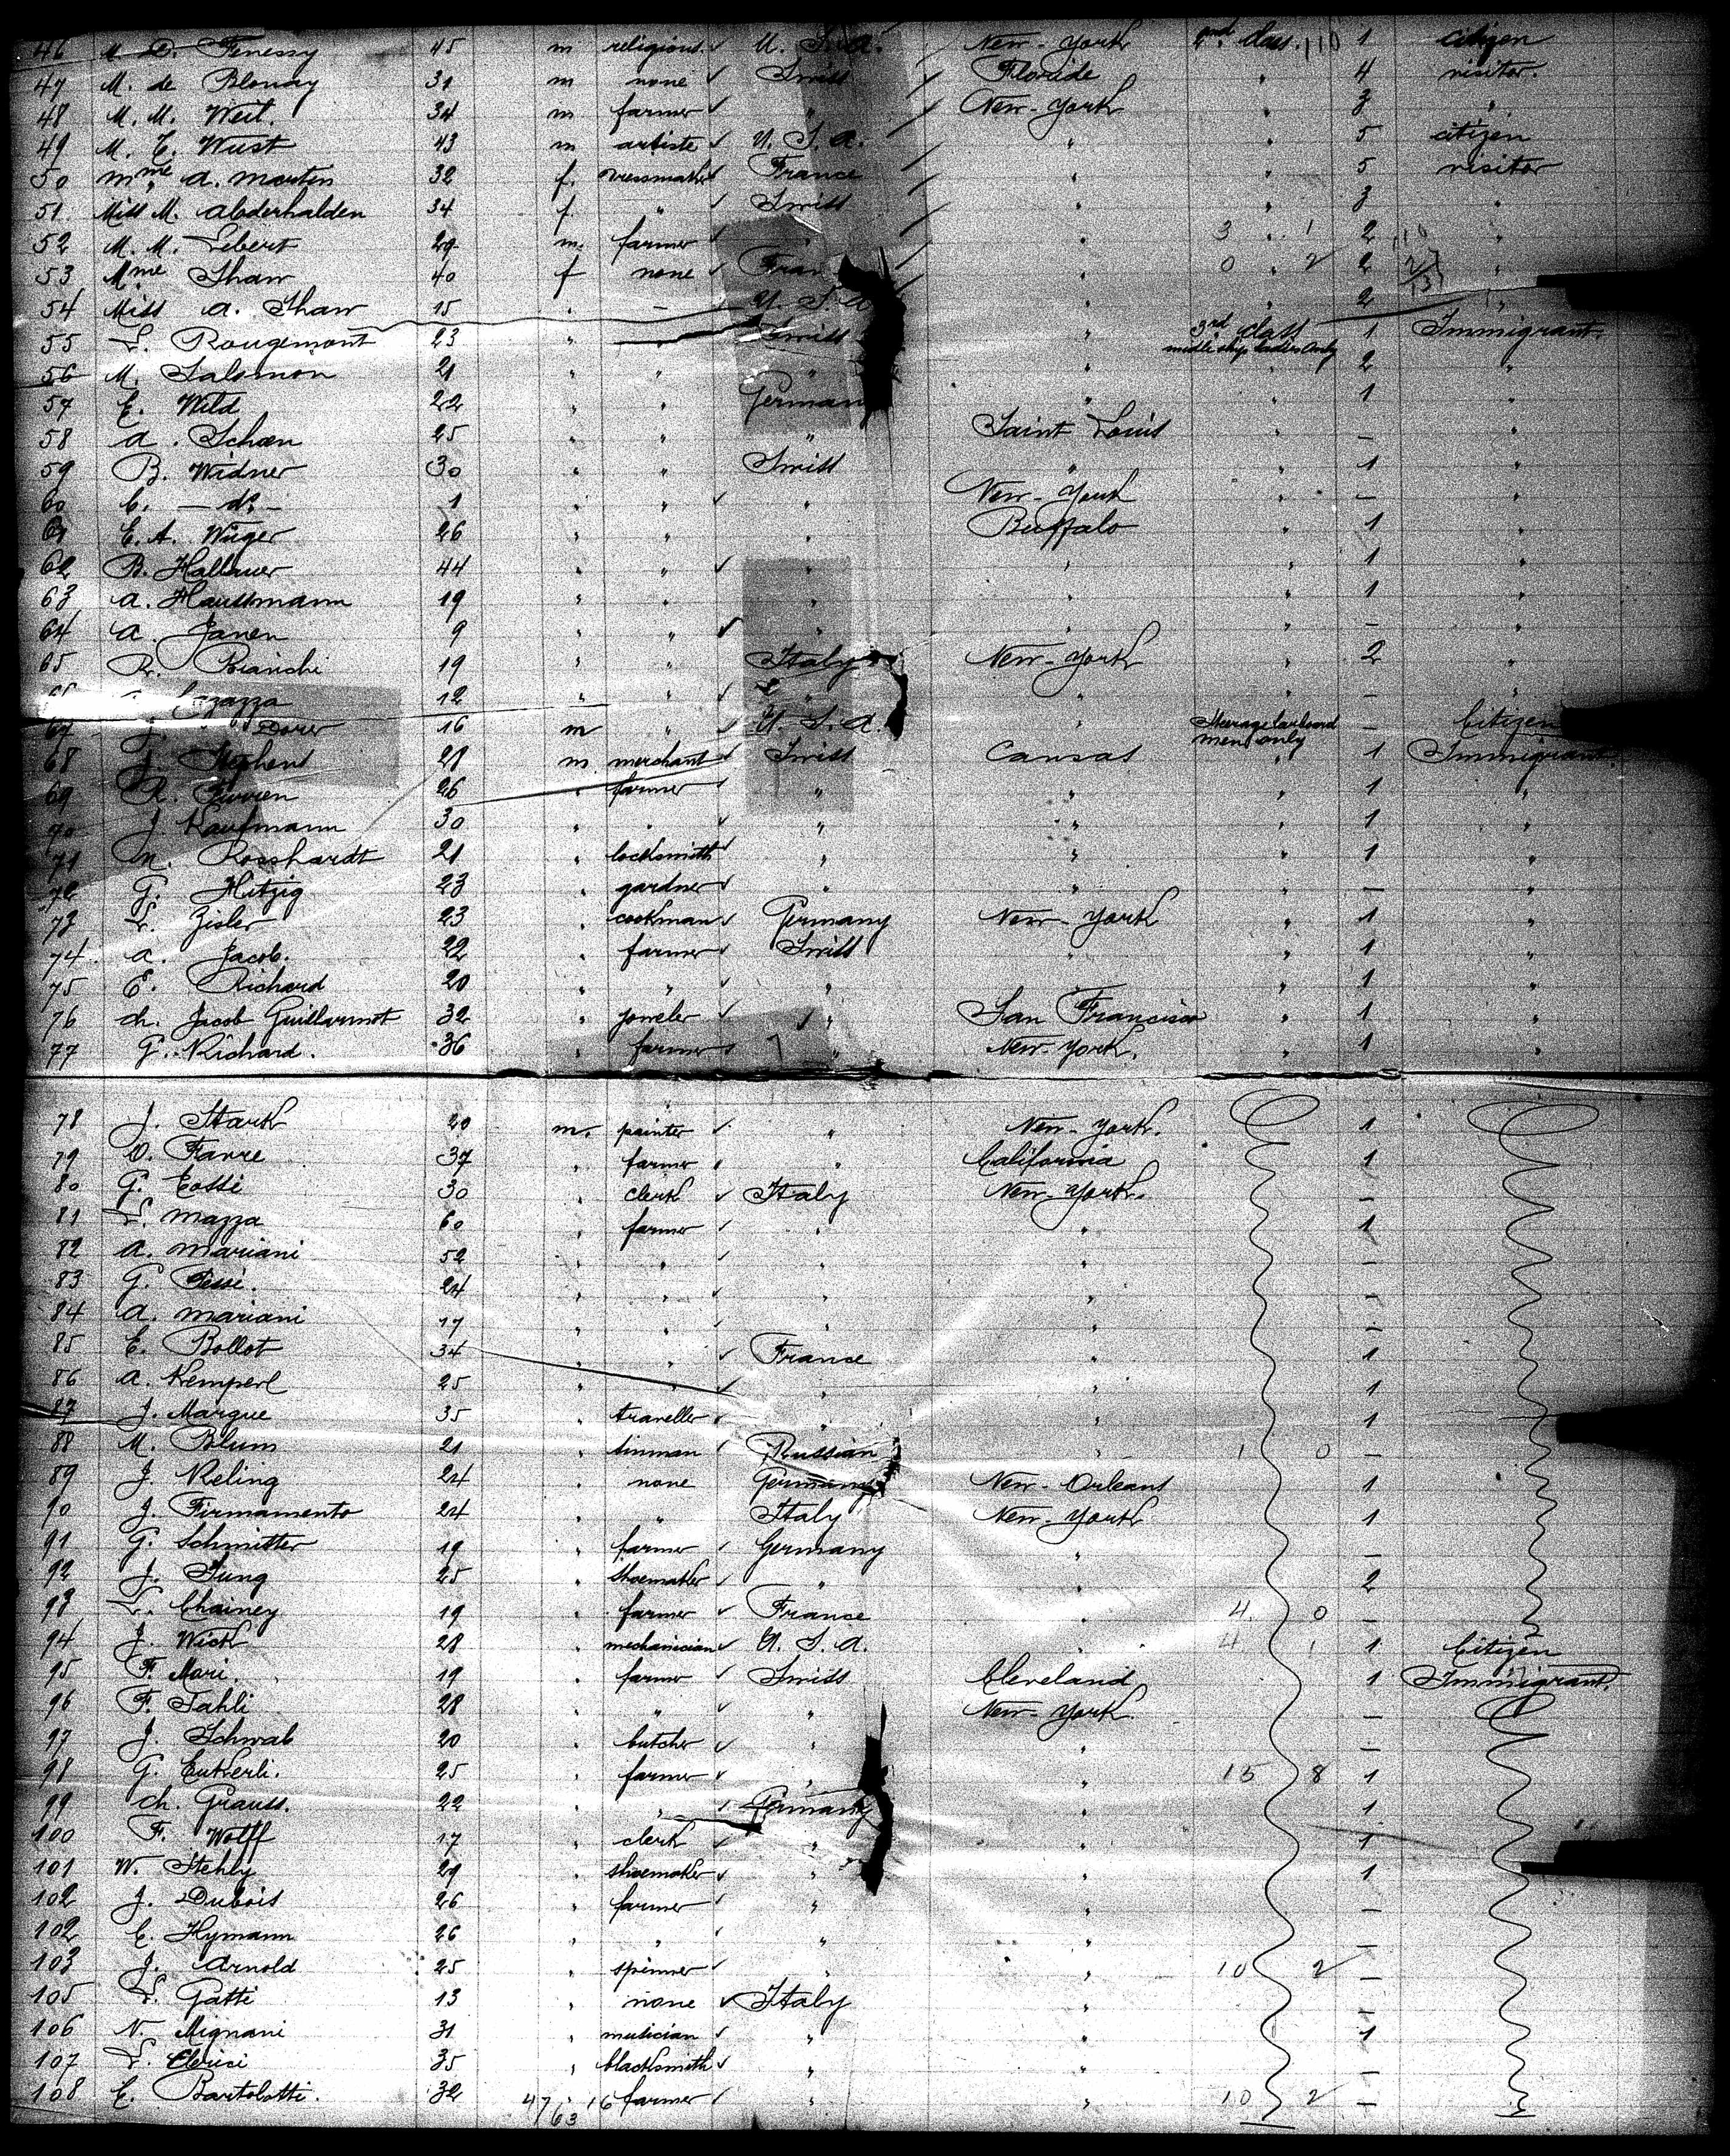 46 M. D. Fenessy 45 m religious U. S. a. New-York 2nd class. 110 1 citizen
47 M. de Blonay 31 m none Swiss Floride " 4 visitor.
48 M. M. Weil. 34 m farmer " New-York " 3 "
49 M. E. Wust 43 m artiste U. S. a. " " 5 citizen
50 Mme a. Martin 32 f. dressmaker France " " 5 visitor
51 Miss M. Abderhalden 34 f. " Swiss " " 3 "
52 M. M. Lebert 29 m. farmer " " 3 " 1 2 "
53 Mme Shaw 40 f none Fran " 0 " 2 2 "
54 Miss a. Shaw 15 " - U. S. a " " 2 "
55 L. Rougemont 23 " " Swiss " 3rd class 1 Immigrant.
midle ship ladies only
56 M. Salsmon 21 " " " " 2 "
57 E. Wild 22 " " German " " 1 "
58 a. Schoen 25 " " " Saint Louis " - "
59 B. Widner 30 " " Swiss " " 1 "
60 C. - do - 1 " " " New-York " - "
61 E. A. Wuger 26 " " " Buffalo " 1 "
62 B. Hallauer 44 " " " " " 1 "
63 a. Haussmann 19 " " " " " 1 "
64 a. Janen 9 " " " " " - "
65 R. Bianchi 19 " " Italy New-York " 2 "
66 Cazazza 12 " " " " " - "
67 J. Dorer 16 m " U. S. a. " Steerage larboard - Citizen
men only
68 J. Stephens 28 m merchant Swiss Cansas " 1 Immigrant.
69 R. Furren 26 " farmer " " " 1 "
70 J. Kaufmann 30 " " " " " 1 "
71 N. Rosshardt 21 " locksmith " " " 1 "
72 G. Hitzig 23 " gardner " " " - "
73 L. Zisler 23 " cookman Germany New-York " 1 "
74. a. Jacob. 22 " farmer Swiss " " 1 "
75 E. Richard 20 " " " " " 1 "
76 ch. Jacob Guillarmot 32 " joweler " San Francisco " 1 "
77 G. Richard. 36 " farmer " New-York. " 1 "
78 J. Stark 20 m. painter " New-York. 1
79 O. Favre 37 " farmer " California 1
80 G. Cossi 30 " clerk Italy New-York. -
81 L. Mazza 60 " farmer " " 1
82 a. Mariani 52 " " " " -
83 G. Pessi. 24 " " " " -
84 a. Mariani 17 " " " " -
85 E. Bollot 34 " " France " 1
86 a. Kemperl 25 " " " " 1
87 J. Margue 35 " traveller " " 1
88 M. Blum 21 " tinman Russian " 1 0 -
89 J. Reling 24 " none Germany New-Orleans 1
90 J. Firmamento 24 " " Italy New-York 1
91 G. Schmitter 19 " farmer Germany " -
92 J. Jung 25 " shoemaker " " 2
93 L. Chainey 19 " farmer France " 4 0 -
94 J. Wick 28 " mechanician U. S. a. " 4 1 1 Citizen
95 F. Mari. 19 " farmer Swiss Cleveland 1 Immigrant.
96 F. Jahli 28 " " " New-York. -
97 J. Schwab 20 " butcher " " -
98 G. Eukerli. 25 " farmer " " 15 8 1
99 ch. Grauss. 22 " " Germany " 1
100 F. Wolff 17 " clerk " " 1
101 W. Stehly 29 " shoemaker " " 1
102 J. Dubois 26 " farmer " " -
102 E. Hymann 26 " " " " -
103 J. Arnold 25 " spinner " " 10 2 -
105 L. Gatti 13 " none Italy " -
106 N. Mignani 31 " musician " " 1
107 L. Clerici 35 " blacksmith " " -
108 E. Bartolotti. 32 " farmer " " 10 2 -